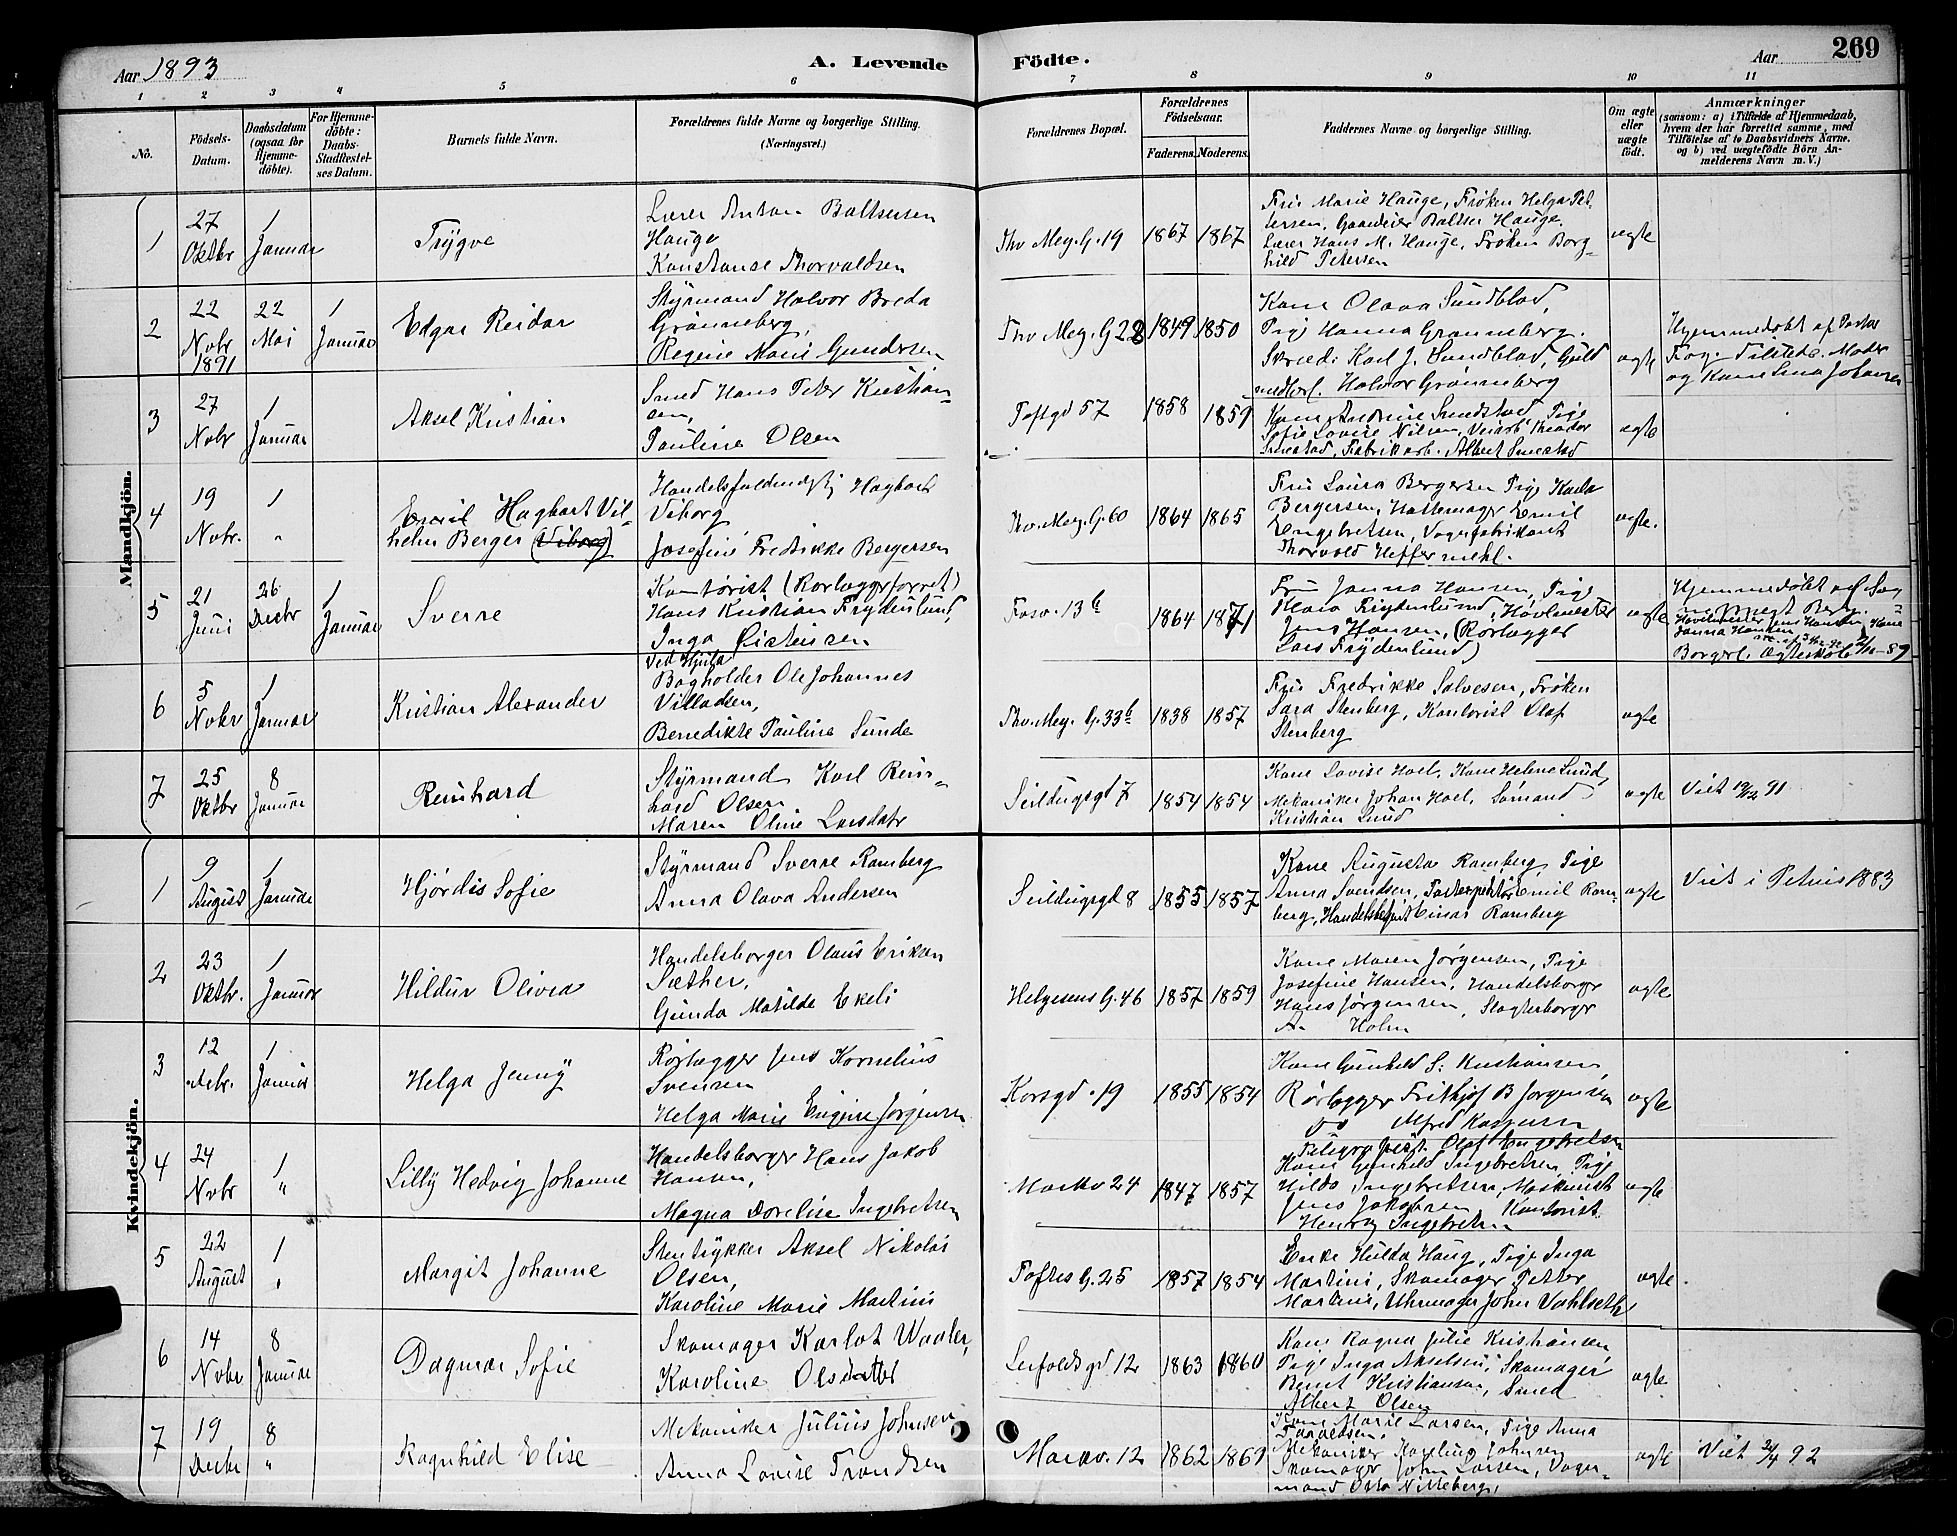 Aar 1893
A. Levende
Födte.
Aar
269
1
2
3
4
5
6
7
8
9
10
11
No.
Födsels-
Datum.
Daabsdatum
(ogsaa for
Hjemme-
döbte).
For Hjemme-
döbte:
Daabs-
Stadfæstel-
ses Datum.
Barnets fulde Navn.
Forældrenes fulde Navne og borgerlige Stilling.
(Næringsvei.)
Forældrenes Bopæl.
Forældrenes
Födselsaar.
Faderens.
Moderens.
Faddernes Navne og borgerlige Stilling.
Om ægte
eller
uægte
födt.
Anmærkninger
(saasom: a) i Tilfælde af Hjemmedaab,
hvem der har forrettet samme, med
Tilföielse af to Daabsvidners Navne.
og b) ved uægtefödte Börn An-
melderens Navn m. V.)
Mandkjön.
1
27
Oktbr
1
Januar
Trygve
Lærer Anton Baltsersen
Hauge
Konstanse Thorvaldsen
Thv. Mey. G. 19
1867
1867
Fru Marie Hauge, Frøken Helga Pet-
tersen, Gaardeier Baltser Hauge.
Lærer Hans M. Hauge, Frøken Borg-
hild Petersen
ægte
2
22
Nobr
1891
22
Mai
1
Januar
Edgar Reidar
Styrmand Halvor Breda
Grønneberg,
Regine Marie Gundersen
Thv. Mey. G 28
1849
1850
Kone Olava Sundblad,
Pige Hanna Grønneberg.
Skræd. Karl J. Sundblad, Guld
Halvor Grønneberg
ægte
Hjemmedøbt af Pastor
Moder
og Kone Lina Johansen
3
27
Nobr
1
Januar
Aksel Kristian
Smed Hans Peter Kristian-
sen,
Pauline Olsen
Toftgd 57
1858
1859
Sofie Lovise Nilsen,
Fabrikarb. Albert Smestad
ægte
4
19
Nobr.
1
"
Emil Hagbart Vil-
helm Berger (Viborg)
Handelsfuldmægtig Hagbart
Viborg
Josefine Fredrikke Bergersen
Thv. Mey. G. 60
1864
1865
Fru Laura Bergersen Pige Karla
Bergersen, Hattemager Emil
Engebretsen, Vognfabrikant
Thorvald Heffermehl.
ægte.
5
21
Juni
26
Decbr
1
Januar
Sverre
Kontorist (Rørlægger foreret)
Hans Kristian Frydenlund,
Inga Kristensen
Fosv. 13 b
1864
1871
Fru Janna Hansen, Pige
Klara Frydenlund, Høvlmester
Jens Hansen, (Rørlægger
Lars Frydenlund)
ægte
Hjemmedøbt af Sog-
Høvlmester Jens Hansen, Kone
Janna Hansen
Borgerl. Ægteskab
6
5
Nobr
1
Januar
Kristian Alexander
Ved Hjula
Bogholder Ole Johannes
Villadsen,
Benedikte Pauline Sunde
Thv. Mey. G. 33 b
1838
1857
Fru Fredrikke Salvesen, Frøken
Sara Stenberg, Kontorist Olaf
Stenberg
ægte
7
25
Oktbr
8
Januar
Reinhard
Styrmand Karl Rein-
hard Olsen
Maren Oline Larsdatr
Seildugsgd 7
1854
1854
Kone Lovise Hoel, Kone Helene Lund,
Mekaniker Johan Hoel, Sømand
Kristian Lund
ægte
Viet 19/12 91
Kvindekjön.
1
9
August
1
Januar
Hjørdis Sofie
Styrmand Sverre Ramberg
Anna Olava Andersen
Seildugsgd 8
1855
1857
Kone Augusta Ramberg, Pige
Anna Svendsen, Emil Ram-
berg, Einar Ramberg
ægte
Viet i Petrus 1883
2
23
Oktbr.
1
Januar
Hildur Olivia
Handelsborger Olaus Eriksen
Sæther,
Gunda Matilde Ekeli
Helgesens G. 46
1857
1859
Kone Maren Jørgensen, Pige
Josefine Hansen, Handelsborger
Hans Jørgensen, Slagterborger
A. Holm
ægte
3
12
Decbr.
1
Januar
Helga Jenny
Rørlægger Jens Kornelius
Svensen
Helga Marie Eugine Jørgensen
Korsgd. 19
1855
1854
Kone Gunhild S. Kristiansen,
Rørlægger Frithjof B Jørgensen
Do Alfred Kaspersen
ægte
4
24
Nobr
1
"
Lilly Hedvig Johanne
Handelsborger Hans Jakob
Hansen,
Magna Dorelise Ingebretsen
Markv 24
1847
1857
Olaf Engebretsen
Kone Gunhild Ingebretsen, Pige
Hilda Ingebretsen, Maskinist
Jens Jakobsen, Kontorist
Henry Ingebretsen
ægte
5
22
August
1
"
Margit Johanne
Stentrykker Aksel Nikolai
Olsen,
Karoline Marie Martini
Toftes G. 25
1857
1854
Enke Hulda Haug, Pige Inga
Martini, Skomager Petter
Martini, Uhrmager John Vahlseth
ægte.
6
14
Nobr
8
Januar
Dagmar Sofie
Skomager Karlot Waaler,
Karoline Olsdatter
Leifolds gd 12
1863
1860
Kone Ragna Julie Kristiansen
Pige Inga Akselsen, Skomager
Bernt Kristiansen, Smed
Albert Olsen
ægte
7
19
Decbr
8
"
Ragnhild Elise
Mekaniker Julius Johnsen
Anna Lovise Trondsen
Markv. 12
1862
1869
Kone Marie Larsen, Pige Anna
Mekaniker Karelius Johnsen
Skomager John Larsen, Vogn-
mand Otto Nitteberg,
ægte
Viet 24/4 92